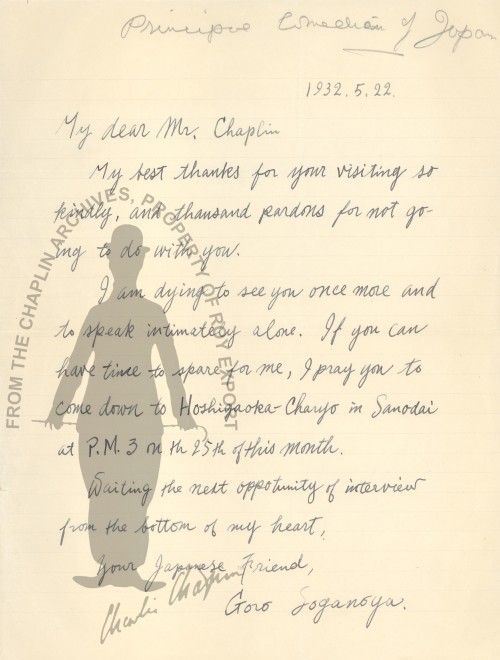 Principoe Comedian of Japan
1932.5.22.
My dear Mr. Chaplin
My best thanks for your visiting so
kindly, and thousand pardons for not go-
ing to do with you.
I am dying to see you once more and
to speak intimately alone. If you can
have time to spare for me, I pray you to
come down to Hoshigaoka-Charyo in Sanodai
at P.M. 3 on th 25th of this month.
Waiting the next oppotunity of interview
from the bottom of my heart,
Your Japanese Friend,
Goro Soganoya.
Charlie Chaplin
FROM THE CHAPLIN ARCHIVES, PROPERTY OF ROY EXPORT